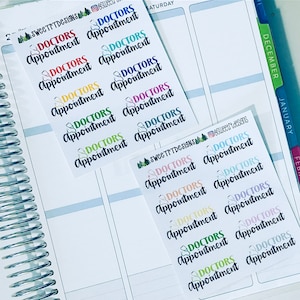 SWEETTDESIGNS
SATURDAY
DOCTORS
Appointment
DOCTORS
Appointment
DOCTORS
Appointment
DOCTORS
Appointment
DOCTORS
Appointment
DOCTORS
Appointment
DOCTORS
Appointment
DOCTORS
Appointment
DOCTORS
Appointment
DOCTORS
Appointment
DECEMBER
JANUARY
SWEETTDESIGNS
DOCTORS
Appointment
DOCTORS
Appointment
DOCTORS
Appointment
DOCTORS
Appointment
DOCTORS
Appointment
DOCTORS
Appointment
DOCTORS
Appointment
DOCTORS
Appointment
DOCTORS
Appointment
DOCTORS
Appointment